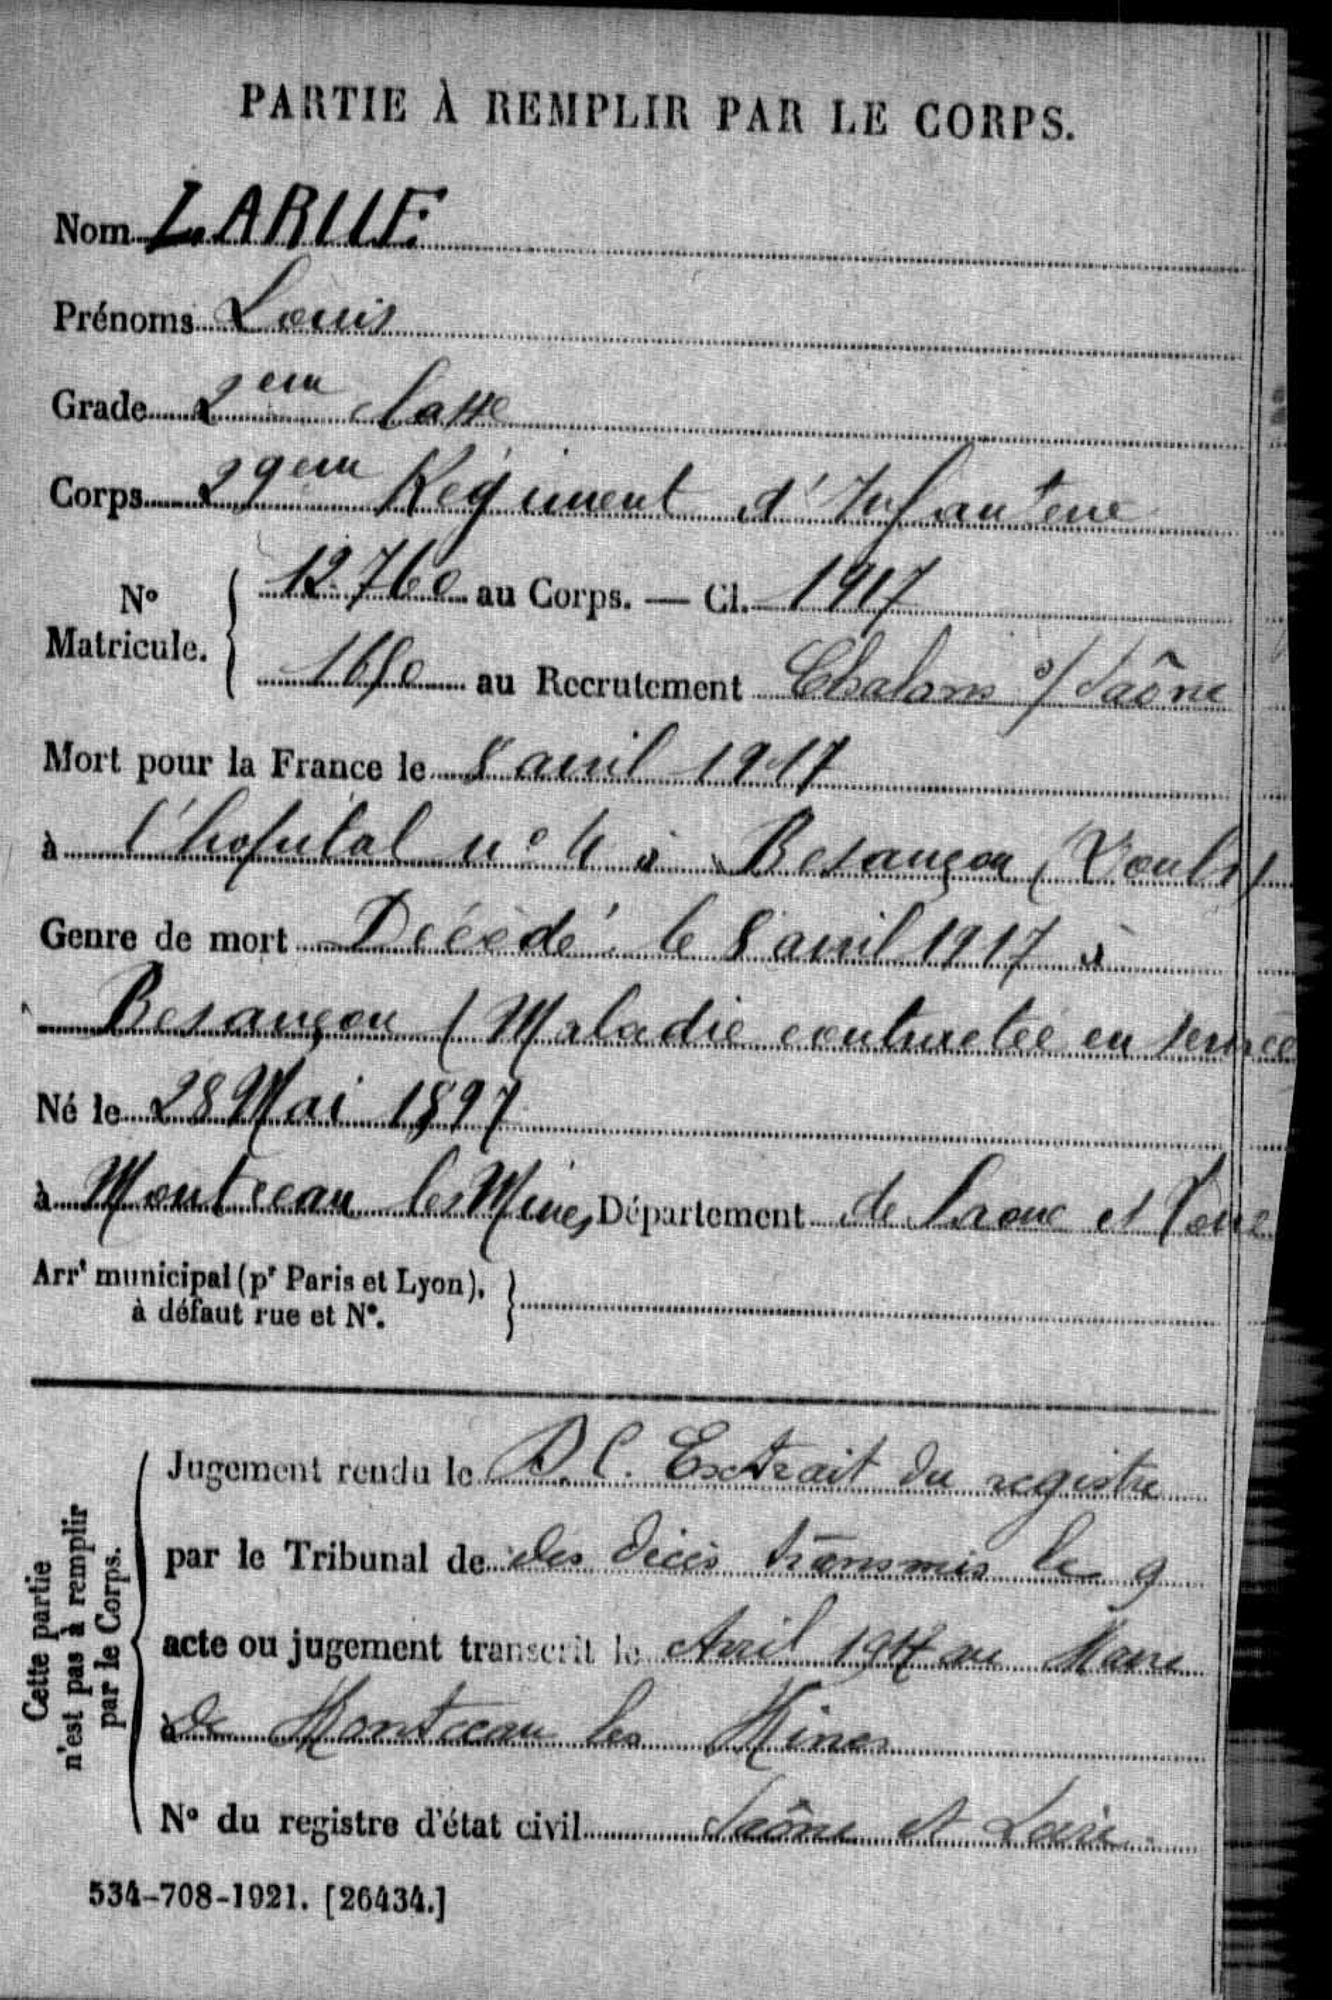 PARTIE À REMPLIR PAR LE CORPS.
Nom LARUE
Prénoms Louis
Grade 2em classe
Corps 29em Régiment d'Infanterie
N° Matricule. 12760 au Corps. — Cl. 1917
au Recrutement Chalons s/ Saône
Mort pour la France le 8 avril 1917
à l'hopital n° 4 à Besançon (Doubs)
Genre de mort Décédé le 8 avril 1917 à
Besançon (Maladie contractée en service
Né le 28 Mai 1897
à Montceau les Mines Département de Saone et Loire
Arrt municipal (pr Paris et Lyon),
à défaut rue et N°.
Cette partie n'est pas à remplir par le Corps.
Jugement rendu le D.C. Extrait du registre
par le Tribunal de des décès transmis le 9
acte ou jugement transcrit le Avril 1917 au Maire
à de Montceau les Mines
N° du registre d'état civil Saône et Loire.
534-708-1921. [26434.]